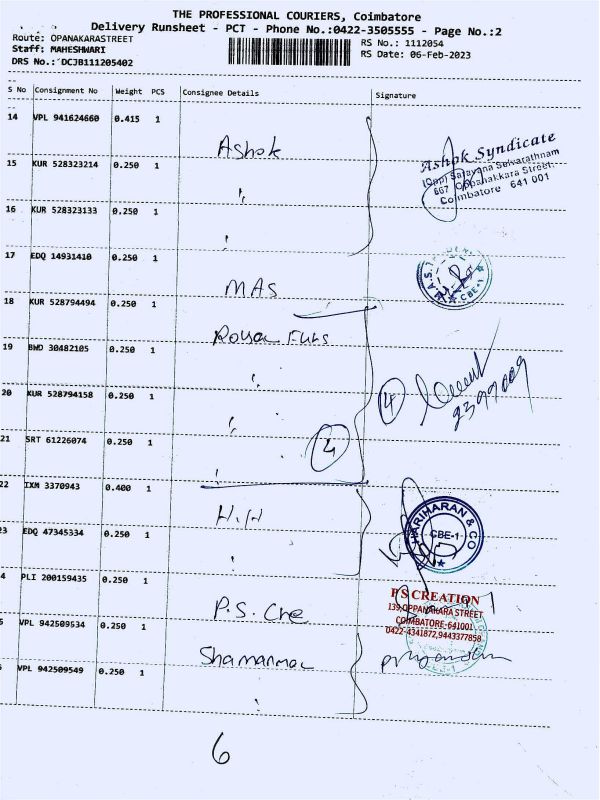 THE PROFESSIONAL COURIERS, Coimbatore
Delivery Runsheet - PCT - Phone No.:0422-3505555 - Page No.:2
Route: OPANAKARASTREET
Staff: MAHESHWARI
DRS No.: DCJB111205402
RS No.: 1112054
RS Date: 06-Feb-2023
S No Consignment No Weight PCS Consignee Details Signature
14 VPL 941624660 0.415 1
Ashok
Ashok Syndicate
(Opp) Saravana Selvarathnam
667 Oppanakkara Street,
Coimbatore 641 001
15 KUR 528323214 0.250 1
16 KUR 528323133 0.250 1
17 EDQ 14931410 0.250 1
MAS
CBE-1
18 KUR 528794494 0.250 1
19 BWD 30482105 0.250 1
20 KUR 528794158 0.250 1
4
21 SRT 61226074 0.250 1
4
22 IXM 3370943 0.400 1
H/H
HARIHARAN & CO
CBE-1
23 EDQ 47345334 0.250 1
4 PLI 200159435 0.250 1
P.S. Cre
P S CREATION
139, OPPANAKARA STREET
COIMBATORE-641001
0422-4341872,9443377858
5 VPL 942509534 0.250 1
VPL 942509549 0.250 1
6